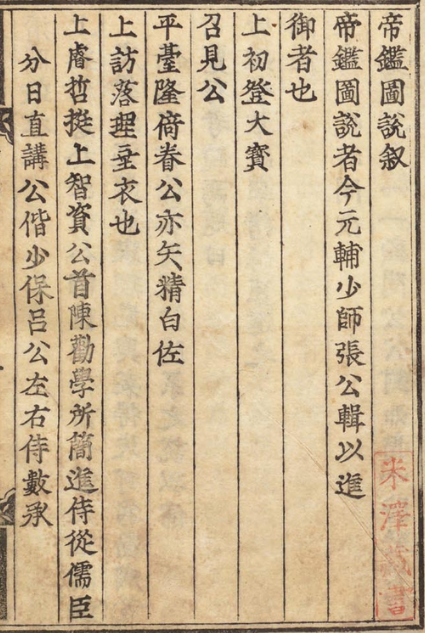 帝鑑圖說叙
帝鑑圖說者今元輔少師張公輯以進
御者也
上初登大寶
召見公
平臺隆倚眷公亦矢精白佐
上訪落理垂衣也
上睿哲挺上智資公首陳勸學所簡進侍從儒臣
分日直講公偕少保呂公左右侍數承
朱澤藏書